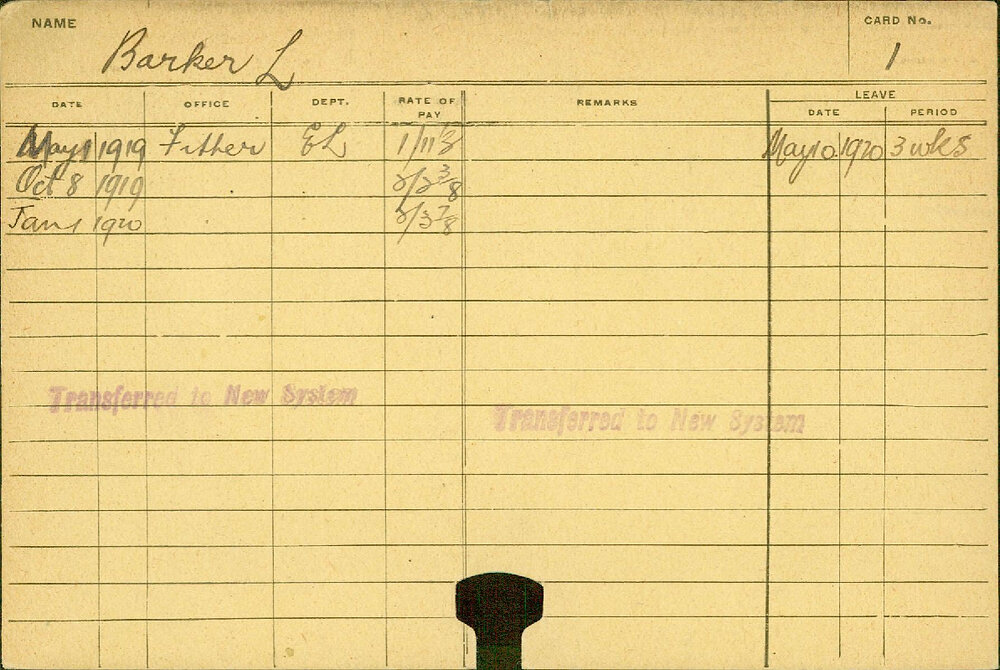 NAME
CARD No.
Barker L
1
DATE OFFICE DEPT. RATE OF PAY REMARKS LEAVE
DATE PERIOD
May 1 1919 Fitter EL 1/11 May 10 1920 3 wks
Oct 8 1919 2/2 3/8
Jan 1 1920 2/3 7/8
Transferred to New System
Transferred to New System